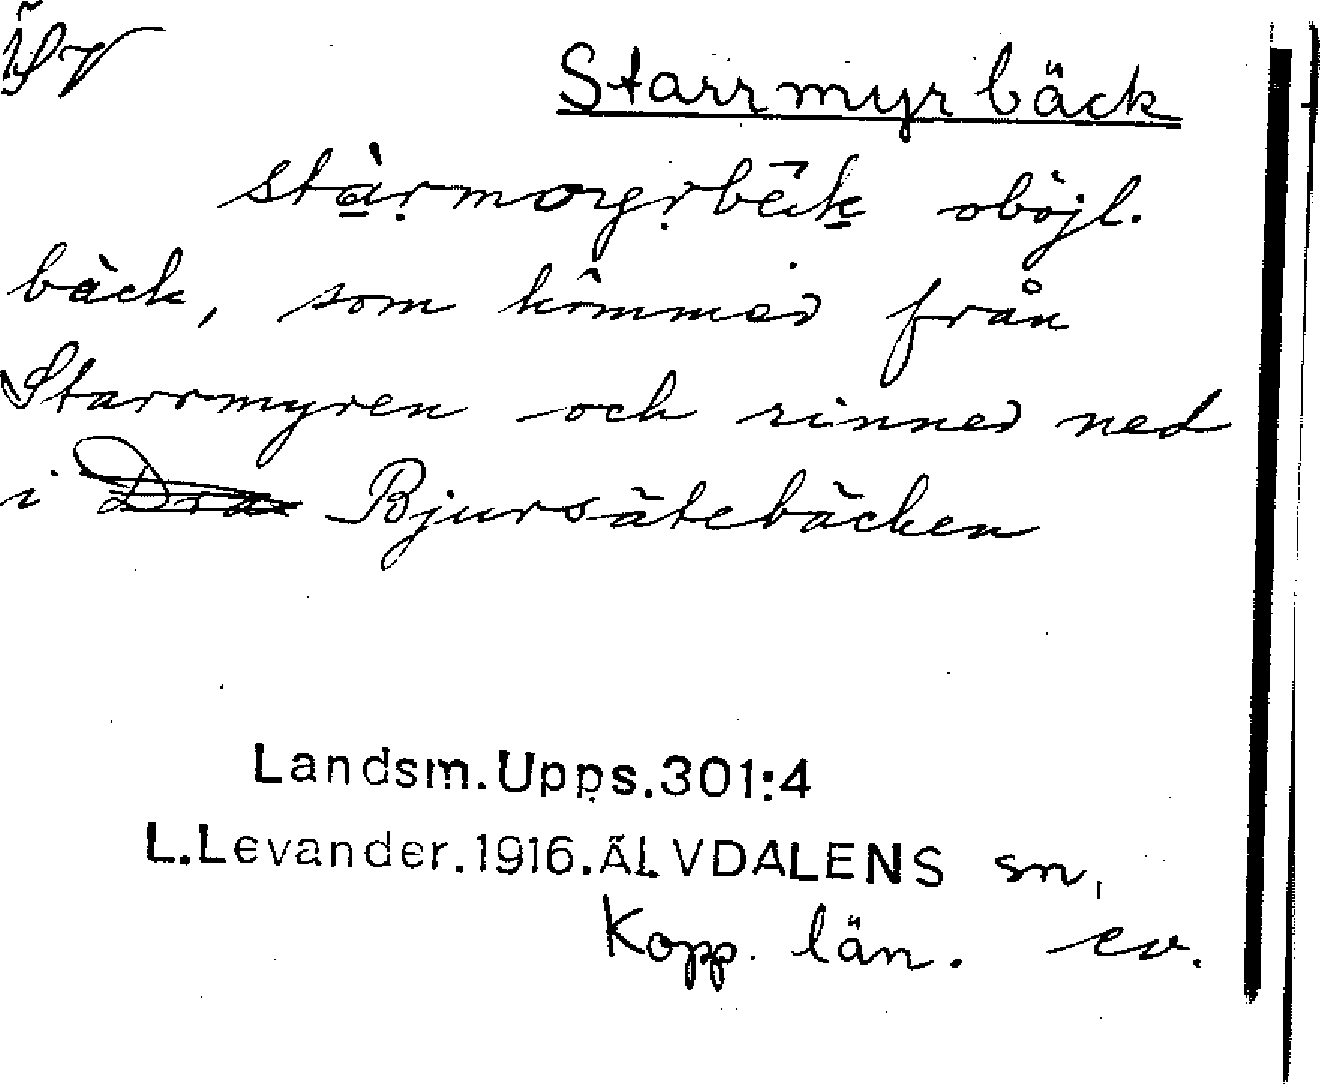 Starrmyrbäck
obojl.
bäck, som kommer från
Starrmyren och rinner ned
i Dra Bjursätebäcken
Landsm.Upps.301:4
L.Levander.1916.ÄLVDALENS sn,
Kopp. län. ev.